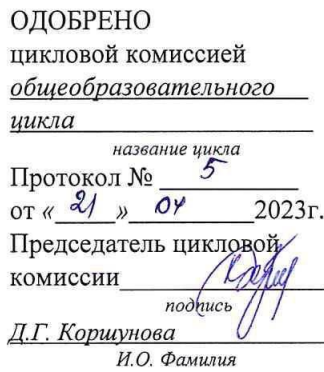 ОДОБРЕНО
цикловой комиссией
общеобразовательного
цикла
название цикла
Протокол № 5
от «21» 04 2023г.
Председатель цикловой
комиссии
подпись
Д.Г. Коршунова
И.О. Фамилия